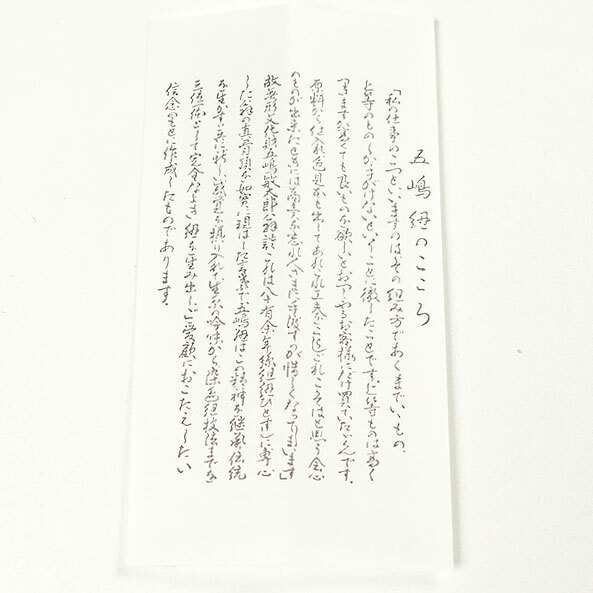 五嶋紐のこころ
「私の仕事のこつといいますのは、その組み方であくまでいいもの、
上等のものしか手がけないということに徹したことです。上等ものは高く
つきますが、高くても良いものが欲しいとおっしゃるお客様にだけ買っていただくんです。
原料から仕入れ色見本も出してあれこれ工夫をこらし、これこそはと思う会心
のものが出来たときには商売を忘れ、人さまに手渡すのが惜しくなってしまいます」
故無形文化財五嶋敏太郎翁談、これは八十有余年絲組紐ひとすじに専心
した翁の真骨頂を如実に現はした言葉で、五嶋紐はこの精神を継承、伝統
を生かす共に新しい感覚を採り入れ、生糸の吟味から染色組技法までを
三位一体として完全なよき紐を生み出し、ご愛顧におこたえしたい
信念のもとに作成したものであります。